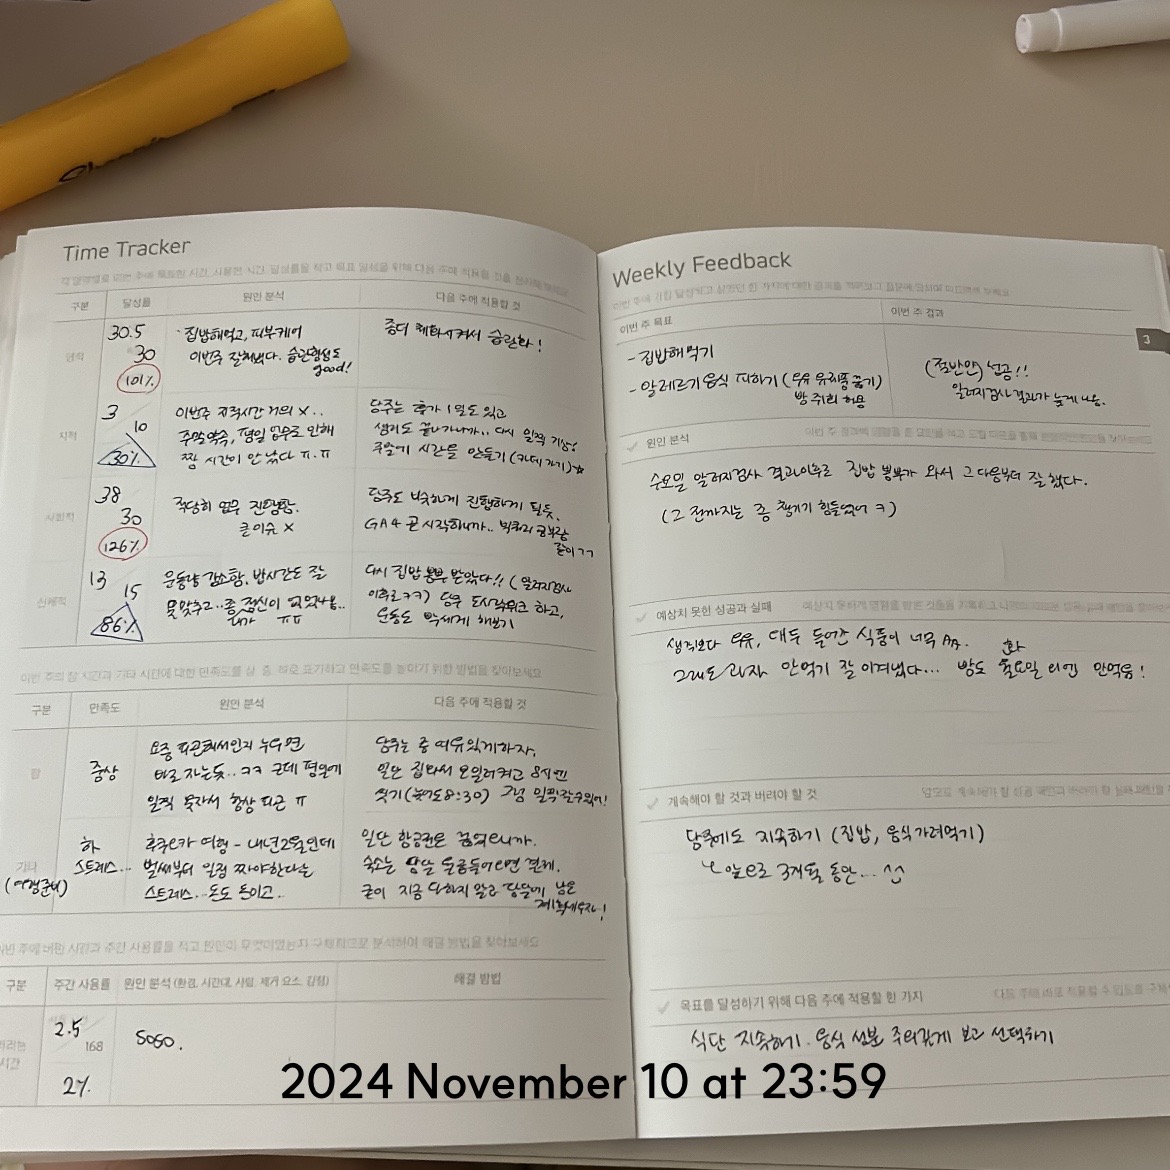 Time Tracker
구분
달성률
원인 분석
다음 주에 적용할 것
30.5
30
101%
집밥해먹고, 피부케어
이번주 잘해냈다. 습관형성도
good!
좀더 체화시켜서 습관화!
지적
3
10
30%
이번주 지적시간 거의 X..
주말약속, 평일 업무로 인해
짬 시간이 안 났다 ㅠ.ㅠ
당주는 휴가 1일도 있고
생리도 끝나가니까.. 다시 일찍 기상!
주말에 시간을 만들기 (카페가기)☆
사회적
38
30
126%
적당히 업무 진행함.
큰이슈 X
당주도 비슷하게 진행하게 될듯.
GA4 곧 시작하니까.. 빅쿼리 공부랑
같이 ㄱㄱ
신체적
13
15
86%
운동량 감소함, 밥시간도 잘
못맞추고..좀 정신이 없었나봄..
내가 ㅠㅠ
다시 집밥 뽐뿌 받았다!! (알러지검사
이후로ㅋㅋ) 당주 도시락워크 하고,
운동도 빡세게 해보기
이번 주의 잠 시간과 기타 시간에 대한 만족도를 상, 중, 하로 표기하고 만족도를 높이기 위한 방법을 찾아보세요
구분
만족도
원인 분석
다음 주에 적용할 것
잠
중상
요즘 피곤해서인지 누우면
바로 자는듯..ㅋㅋ 근데 평일에
일찍 못자서 항상 피곤 ㅠ
당주는 좀 여유있게하자.
일단 집와서 오일러키고 8시엔
씻기(늦어도8:30) 그럼 일찍잘수있어!
기타
(여행준비)
하
스트레스...
후쿠오카 여행 - 내년2월인데
벌써부터 일정 짜야한다는
스트레스.. 돈도 돈이고..
일단 항공권은 끊었으니까.
숙소는 담달 월급들어오면 결제.
굳이 지금 다하지 말고 담달에 남은
계획세우자!
이번 주에 버린 시간과 주간 사용률을 적고 원인이 무엇이었는지 구체적으로 분석하여 해결 방법을 찾아보세요
구분
주간 사용률
원인 분석 (환경, 시간대, 사람, 제거 요소, 감정)
해결 방법
버리는
시간
2.5
168
2%
soso.
Weekly Feedback
이번 주 목표
이번 주 결과
3
- 집밥해먹기
- 알레르기음식 피하기 (우유 유제품 끊기)
빵 주1회 허용
(절반만) 성공!!
알러지검사 결과가 늦게 나옴.
원인 분석
수요일 알러지검사 결과이후로 집밥 뽐뿌가 와서 그 다음부터 잘 했다.
(그 전까지는 좀 챙기기 힘들었어 ㅋ)
예상치 못한 성공과 실패
생각보다 우유, 대두 들어간 식품이 너무 많다.
화
그래도 과자 안먹기 잘 이겨냈다... 빵도 월요일 이엔 안먹음!
계속해야 할 것과 버려야 할 것
당주에도 지속하기 (집밥, 음식가려먹기)
ㄴ 앞으로 3개월 동안...
목표를 달성하기 위해 다음 주에 적용할 한 가지
식단 지속하기. 음식 성분 주의깊게 보고 선택하기
2024 November 10 at 23:59